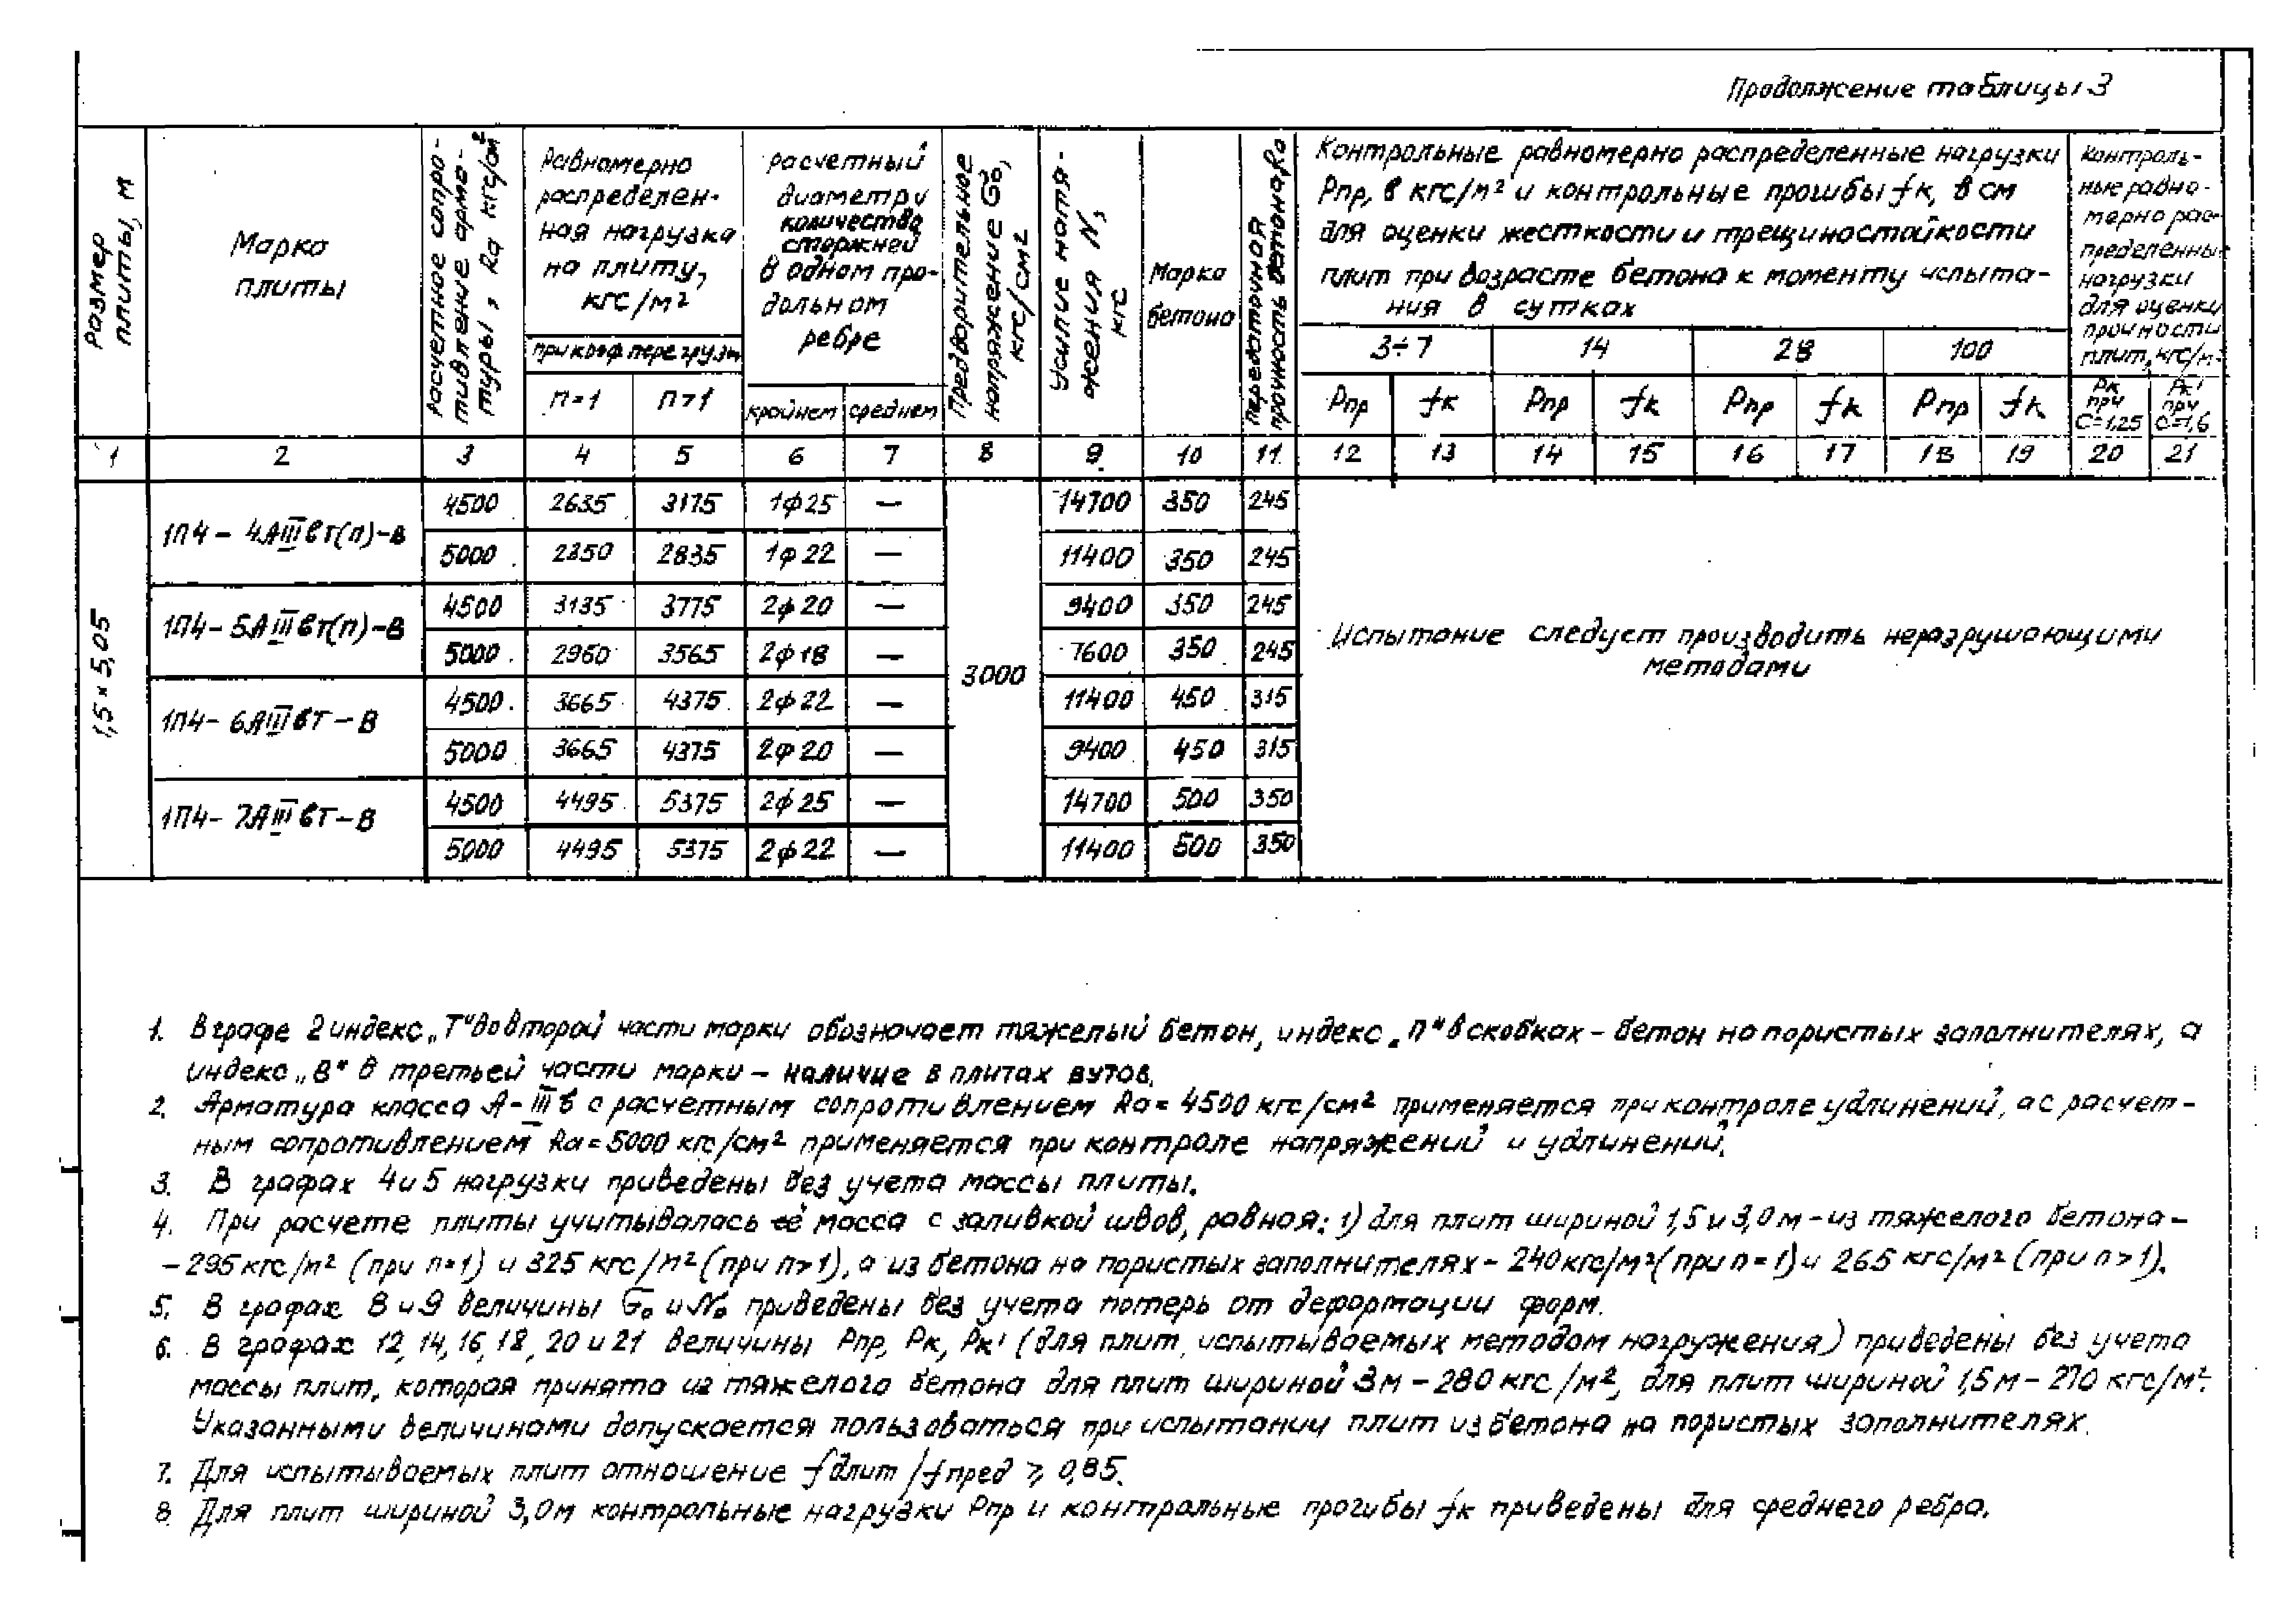 Продолжение таблицы 3
Размер плиты, м
Марка
плиты
Расчетное сопро-
тивление арма-
туры, Rа кгс/см²
Равномерно
распределен-
ная нагрузка
на плиту,
кгс/м²
при коэф. перегрузк.
n=1
n>1
расчетный
диаметр и
количество
стержней
в одном про-
дольном
ребре
крайнем
среднем
Предварительное
напряжение σ₀,
кгс/см²
Усилие натя-
жения N,
кгс
Марка
бетона
Передаточная
прочность бетона R₀
Контрольные равномерно распределенные нагрузки
Рпр, в кгс/м² и контрольные прогибы fк, в см
для оценки жесткости и трещиностойкости
плит при возрасте бетона к моменту испыта-
ния в сутках
3÷7 14 28 100
Рпр fк Рпр fк Рпр fк Рпр fк
Контроль-
ные равно-
мерно рас-
пределенны
нагрузки
для оценки
прочности
плит, кгс/м²
Рк
при
С=1,25
Рк'
при
С=1,6
1 2 3 4 5 6 7 8 9 10 11 12 13 14 15 16 17 18 19 20 21
1,5×5,05
3000
1П4-4АIIIвТ(П)-В
4500 2635 3175 1ф25 — 14700 350 245
5000 2350 2835 1ф22 — 11400 350 245
1П4-5АIIIвТ(П)-В
4500 3135 3775 2ф20 — 9400 350 245
5000 2960 3565 2ф18 — 7600 350 245
1П4-6АIIIвТ-В
4500 3665 4375 2ф22 — 11400 450 315
5000 3665 4375 2ф20 — 9400 450 315
1П4-7АIIIвТ-В
4500 4495 5375 2ф25 — 14700 500 350
5000 4495 5375 2ф22 — 11400 500 350
Испытание следует производить неразрушающими
методами
1. В графе 2 индекс „Т“ во второй части марки обозначает тяжелый бетон, индекс „П“ в скобках – бетон на пористых заполнителях, а
индекс „В“ в третьей части марки – наличие в плитах вутов.
2. Арматура класса А-IIIв с расчетным сопротивлением Rа = 4500 кгс/см² применяется при контроле удлинений, а с расчет-
ным сопротивлением Rа = 5000 кгс/см² применяется при контроле напряжений и удлинений.
3. В графах 4 и 5 нагрузки приведены без учета массы плиты.
4. При расчете плиты учитывалась её масса с заливкой швов, равная: 1) для плит шириной 1,5 и 3,0 м – из тяжелого бетона –
– 295 кгс/м² (при n=1) и 325 кгс/м² (при n>1), а из бетона на пористых заполнителях – 240 кгс/м² (при n=1) и 265 кгс/м² (при n>1).
5. В графах 8 и 9 величины σ₀ и N₀ приведены без учета потерь от деформации форм.
6. В графах 12, 14, 16, 18, 20 и 21 величины Рпр, Рк, Рк' (для плит, испытываемых методом нагружения) приведены без учета
массы плит, которая принята из тяжелого бетона для плит шириной 3 м – 280 кгс/м², для плит шириной 1,5 м – 270 кгс/м².
Указанными величинами допускается пользоваться при испытании плит из бетона на пористых заполнителях.
7. Для испытываемых плит отношение fдлит/fпред ⩾ 0,85.
8. Для плит шириной 3,0 м контрольные нагрузки Рпр и контрольные прогибы fк приведены для среднего ребра.